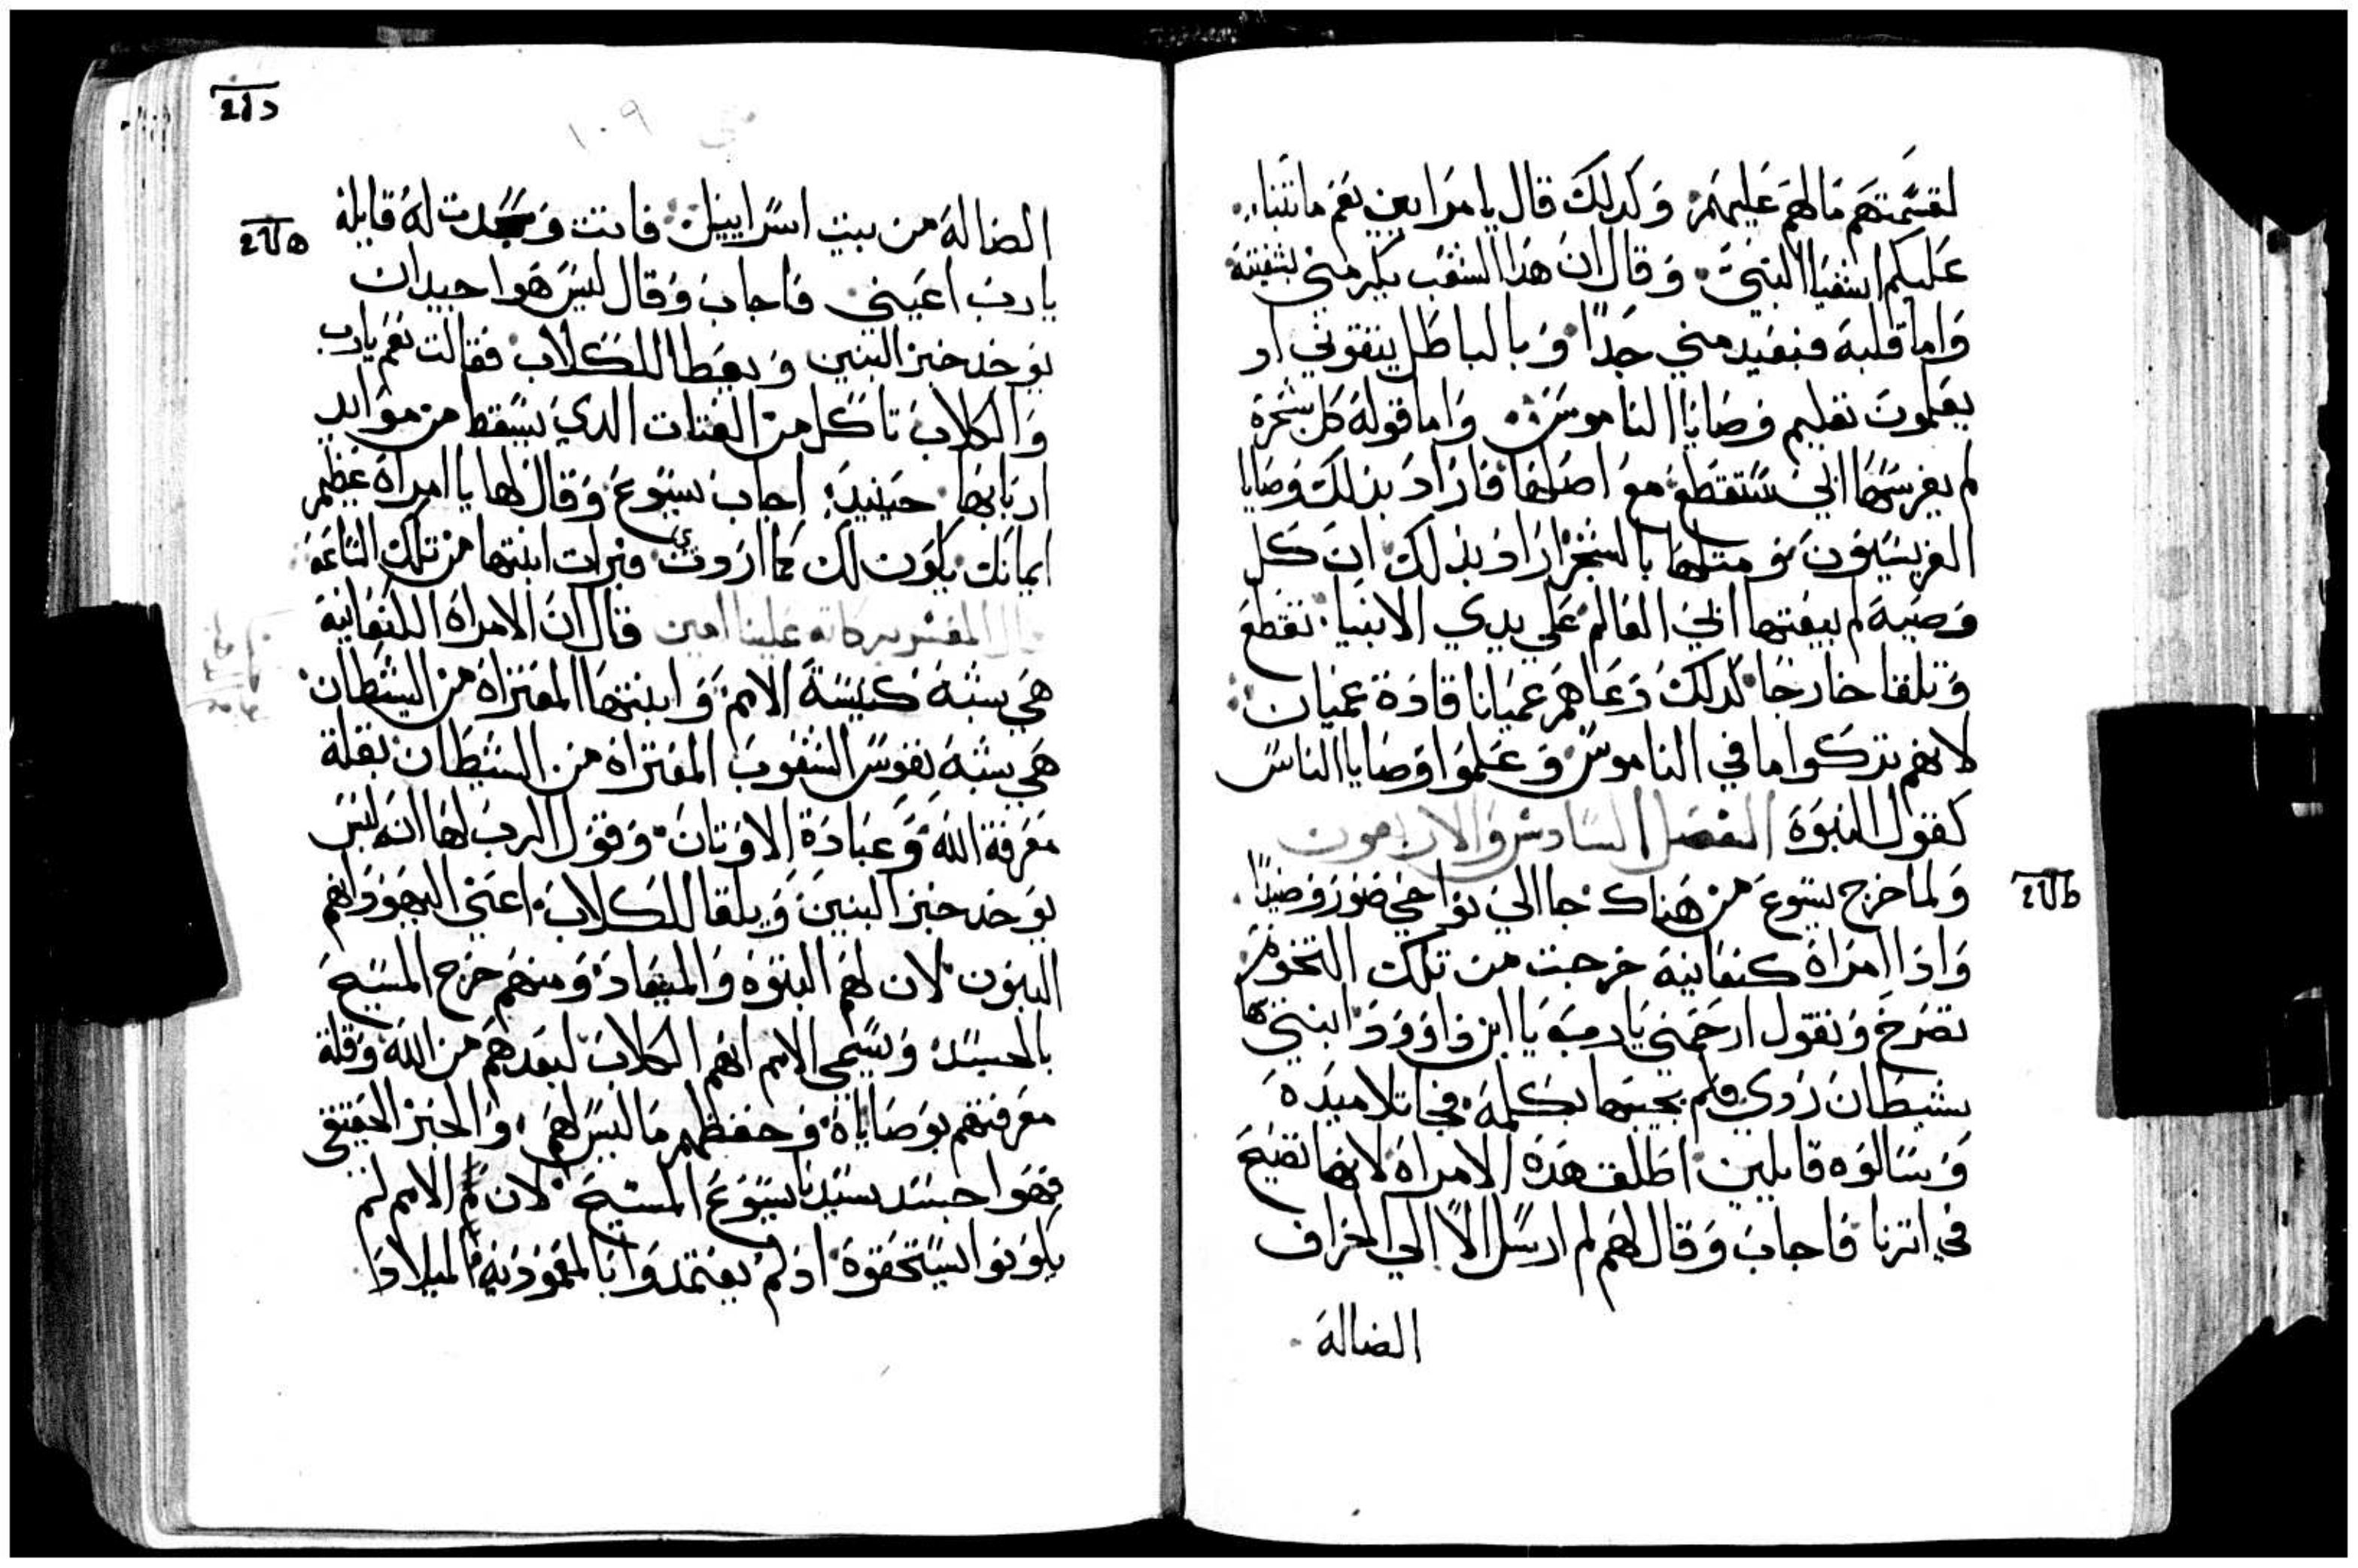 لقسمتهم مالهم عليهم وكدلك قال يا مرايين نعم ما تنبا
عليكم اشعيا النبي وقال ان هدا الشعب يكرمني بشفتيه
واما قلبه فبعيد مني جدا وبالباطل يتقوني اد
يعلمون تعليم وصايا الناموس واما قوله كل شجرة
لم يغرسها ابي ستقطع مع اصلها فاراد بذلك وصايا
الفريسيون ومتلها بالشجر اراد بذلك ان كل
وصية لم يبعتها ابي العالم علي يدي الانبيا تقطع
وتلقا خارجا لدلك دعاهم عميانا قادة عميان
لانهم تركوا ما في الناموس وعلموا وصايا الناس
كقول النبوة الفصل السادس والاربعون
ولما خرج يسوع من هناك جا الي نواحي صور وصيدا
وادا امراة كنعانية خرجت من تلك التخوم
تصرخ وتقول ارحمني يا رب يا ابن داوود ابنتي بها
شيطان ردي فلم يجيبها بكلمة فجا تلاميده
وسالوه قايلين اطلق هده الامراة لانها تصيح
في اترنا فاجاب وقال لهم لم ارسل الا الي الخراف
الضالة
١٠٩
الضالة من بيت اسراييل فاتت وسجدت له قايلة
يا رب اعيني فاجاب وقال ليس هوا جيدان
يوخد خبز البنين ويعطا للكلاب فقالت نعم يا رب
والكلاب تاكل من الفتات الدي يسقط من موايد
اربابها حينيد اجاب يسوع وقال لها يا امراة عظيم
ايمانك يكون لك كما اردتي فبرات ابنتها من تلك الساعة
قال المفسر بركاته علينا امين قال ان الامراة الكنعانية
هي شبه كنيسة الامم وابنتها المعتراة من الشيطان
هي شبه نفوس الشعوب المعتراة من الشيطان بقلة
معرفة الله وعبادة الاوتان وقول الرب لها انه ليس
يوخد خبز البنين ويلقا للكلاب اعني اليهود انهم
البنون لان لهم البنوة والميعاد ومنهم خرج المسيح
بالجسد وسمي الامم انهم الكلاب لبعدهم من الله وقلة
معرفتهم بوصاياه وحفظهم ما ليس لهم والخبز الحقيقي
فهوا جسد سيدنا يسوع المسيح لان الامم لم
يكونوا يستحقوه اد لم يعتمدوا بالمعمودية الميلاد